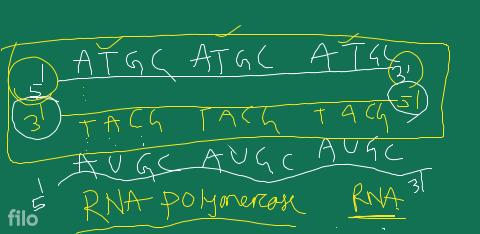 ATGC ATGC ATGC
5' 3'
3' 5'
TACG TACG TACG
AUGC AUGC AUGC
5' 3'
RNA polymerase RNA
filo